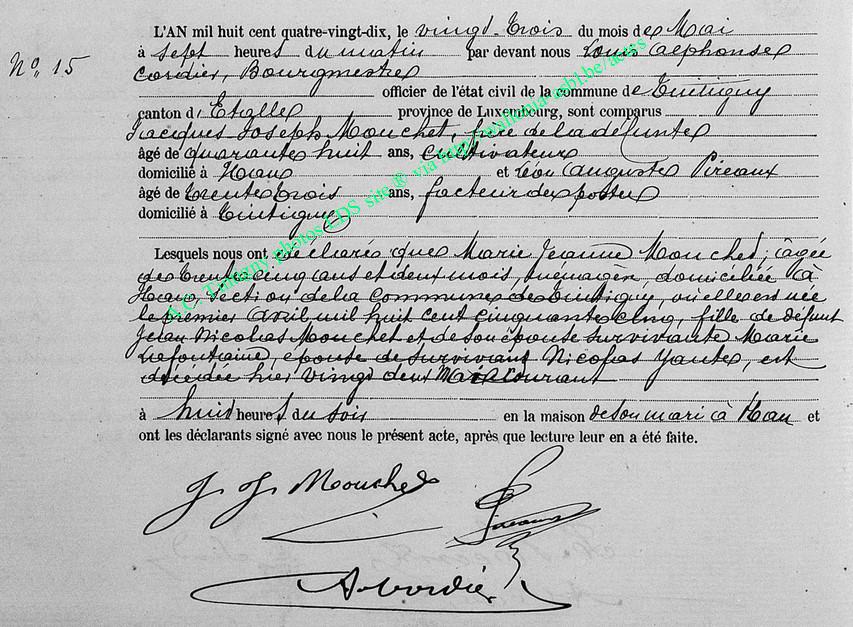 L'AN mil huit cent quatre-vingt-dix, le vingt-trois du mois de Mai
N° 15
à sept heures du matin par devant nous Louis alphonse
Cordier, Bourgmestre
officier de l'état civil de la commune de Tintigny
canton d'Etalle province de Luxembourg, sont comparus
Jacques Joseph Mouchet, frère de la défunte
âgé de quarante huit ans, cultivateur
domicilié à Han et Léon Auguste Pireaux
âgé de trente trois ans, facteur des postes
domicilié à Tintigny
Lesquels nous ont déclaré que Marie Jeanne Mouchet, âgée
de trente cinq ans et deux mois, ménagère, domiciliée à
Han, section de la commune de Tintigny, où elle est née
le premier avril mil huit cent cinquante cinq, fille de défunt
Jean Nicolas Mouchet et de son épouse survivante Marie
Lafontaine, épouse de survivant Nicolas Yante, est
décédée hier vingt deux Mai courant
à huit heures du soir en la maison de son mari à Han et
ont les déclarants signé avec nous le présent acte, après que lecture leur en a été faite.
J. J. Mouchet
Pireaux
A. Cordier
A.C. Tintigny photos LDS site ® via http://wallonia-asbl.be/actes